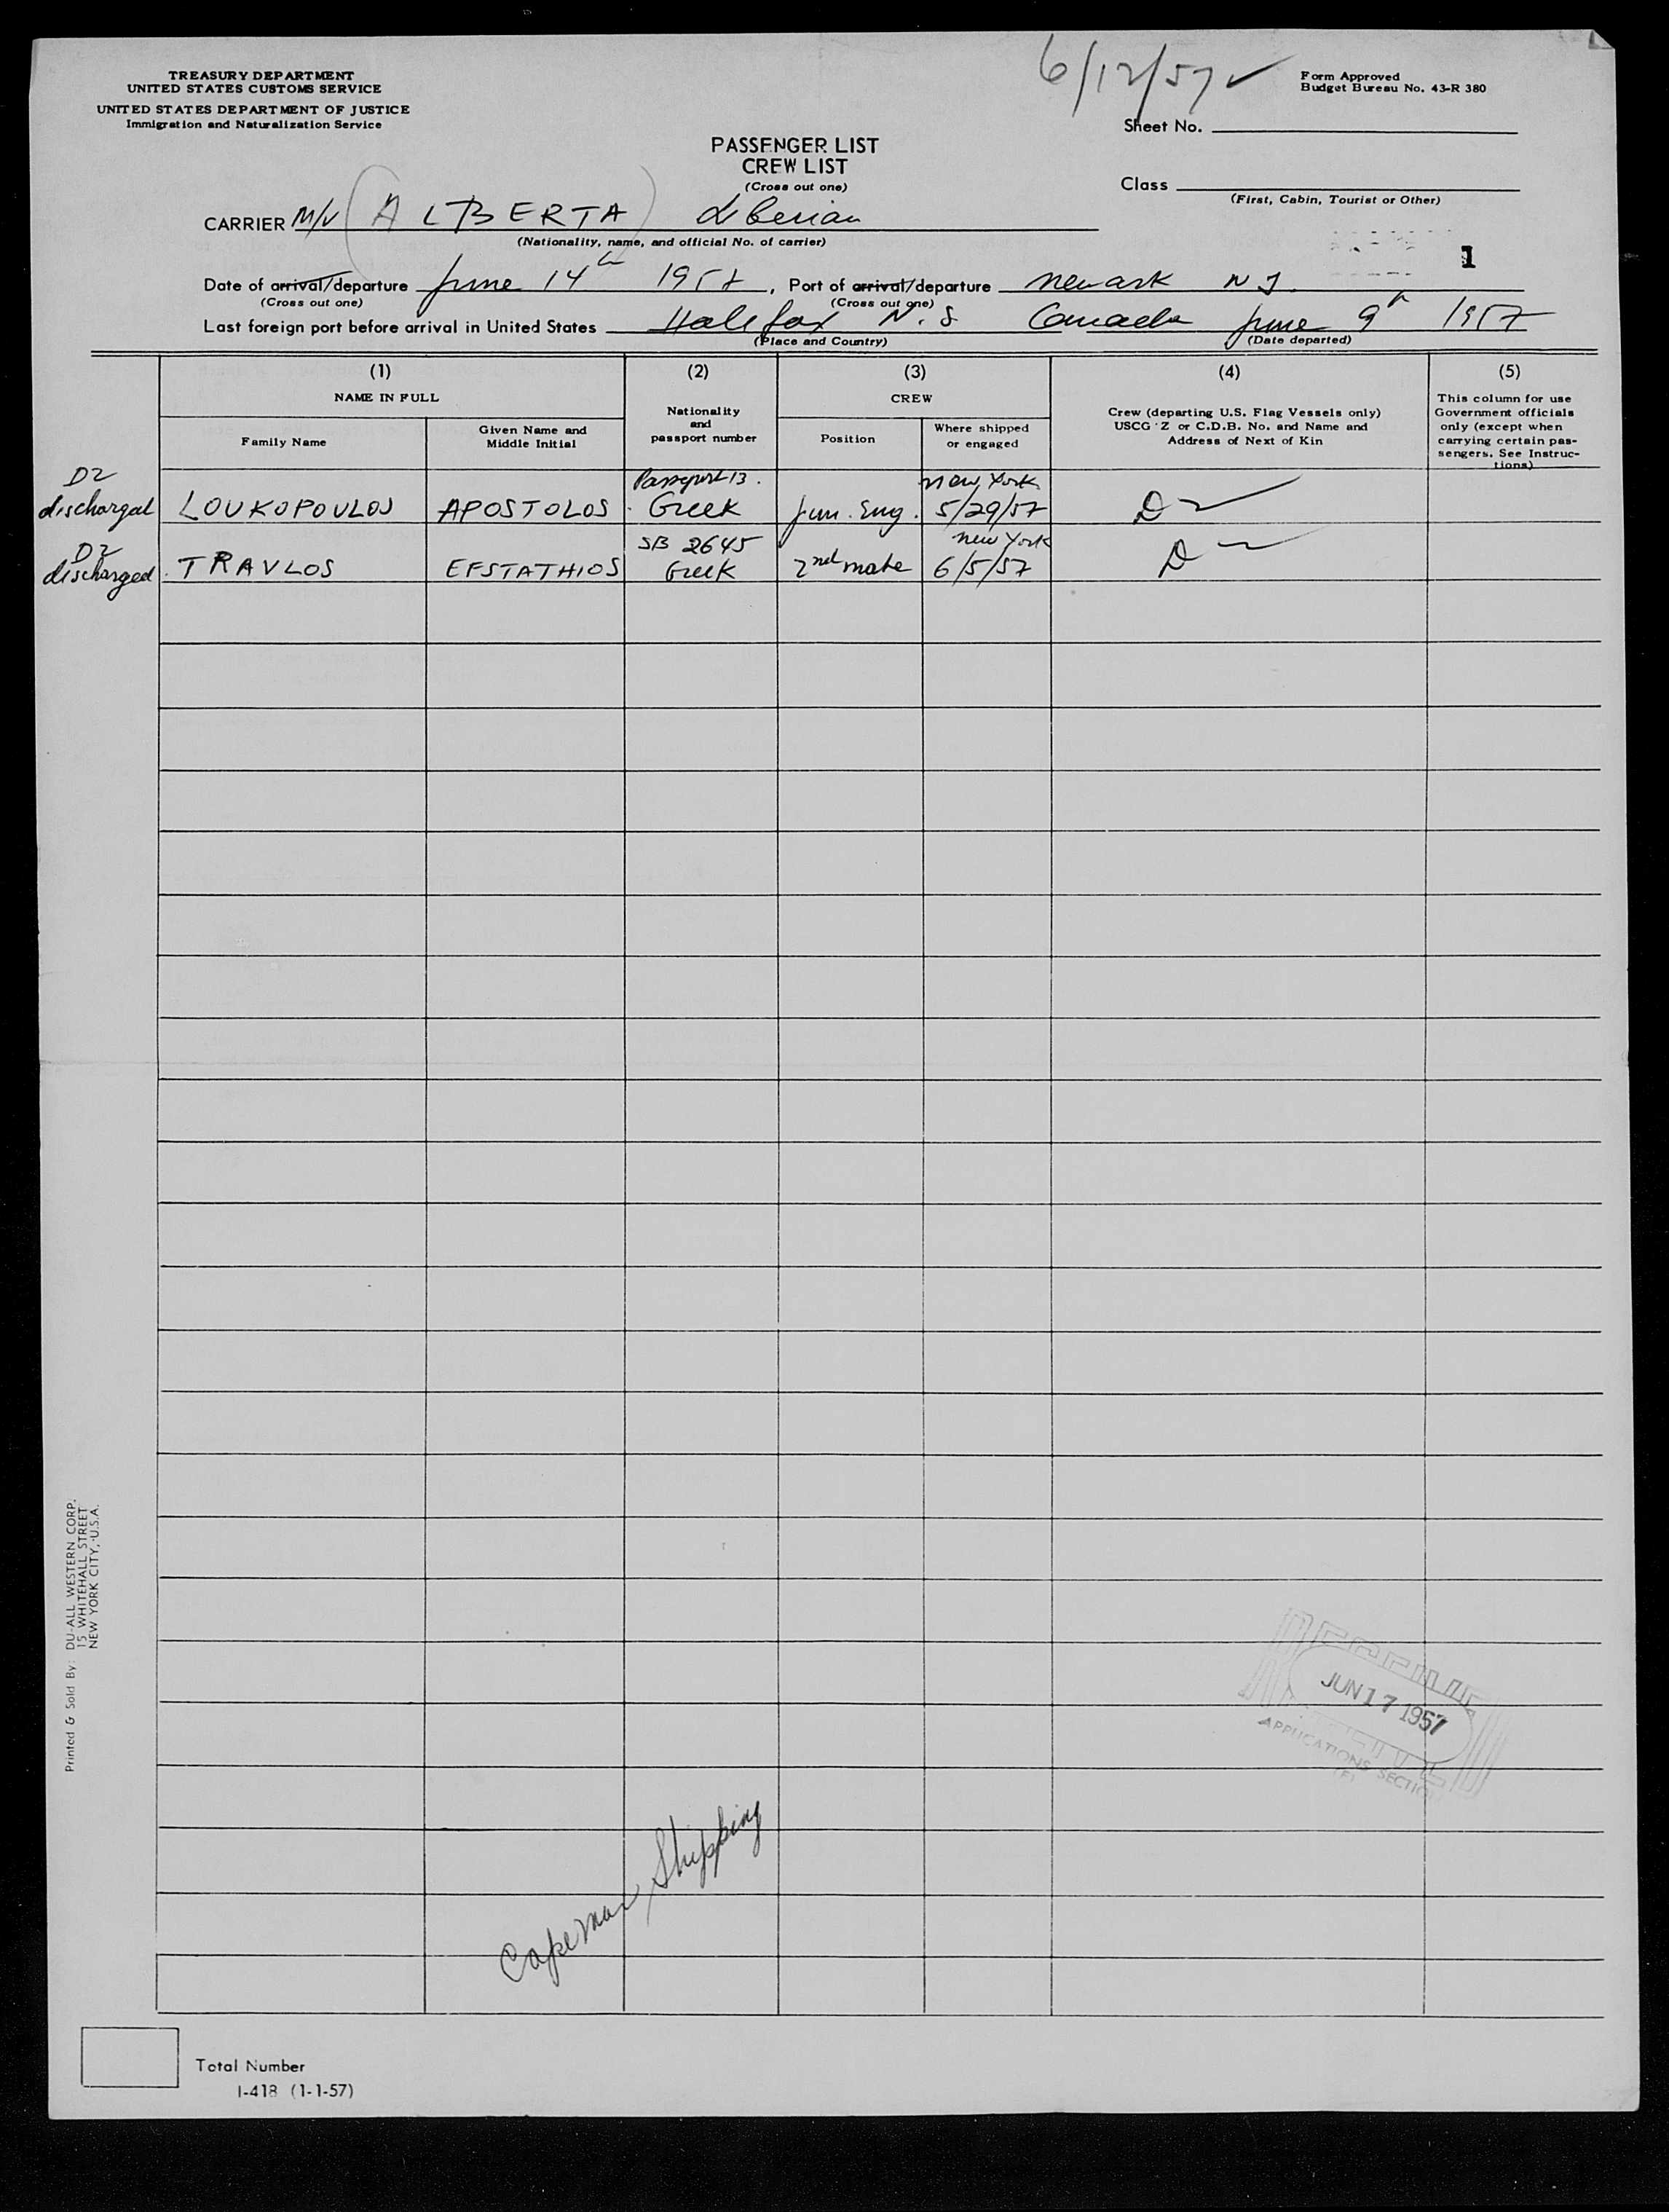 6/12/57
TREASURY DEPARTMENT
UNITED STATES CUSTOMS SERVICE
UNITED STATES DEPARTMENT OF JUSTICE
Immigration and Naturalization Service
Form Approved
Budget Bureau No. 43-R 380
Sheet No.
PASSENGER LIST
CREW LIST
(Cross out one)
Class
(First, Cabin, Tourist or Other)
CARRIER M/V (ALBERTA) Liberian
(Nationality, name, and official No. of carrier)
1
Date of arrival/departure June 14th 1957, Port of arrival/departure Newark N J.
(Cross out one) (Cross out one)
Last foreign port before arrival in United States Halifax N.S Canada June 9th 1957
(Place and Country) (Date departed)
(1) (2) (3) (4) (5)
NAME IN FULL
Family Name
Given Name and
Middle Initial
Nationality
and
passport number
CREW
Position
Where shipped
or engaged
Crew (departing U.S. Flag Vessels only)
USCG Z or C.D.B. No. and Name and
Address of Next of Kin
This column for use
Government officials
only (except when
carrying certain pas-
sengers. See Instruc-
tions)
D2 Passport 13. New York
discharged LOUKOPOULOS APOSTOLOS Greek Jun. Eng. 5/29/57 D2
D2 SB 2645 New York
discharged TRAVLOS EFSTATHIOS Greek 2nd mate 6/5/57 D
JUN 17 1957
APPLICATIONS SECTION
Shipping
Printed & Sold By: DU-ALL WESTERN CORP.
15 WHITEHALL STREET
NEW YORK CITY, U.S.A.
Total Number
I-418 (1-1-57)